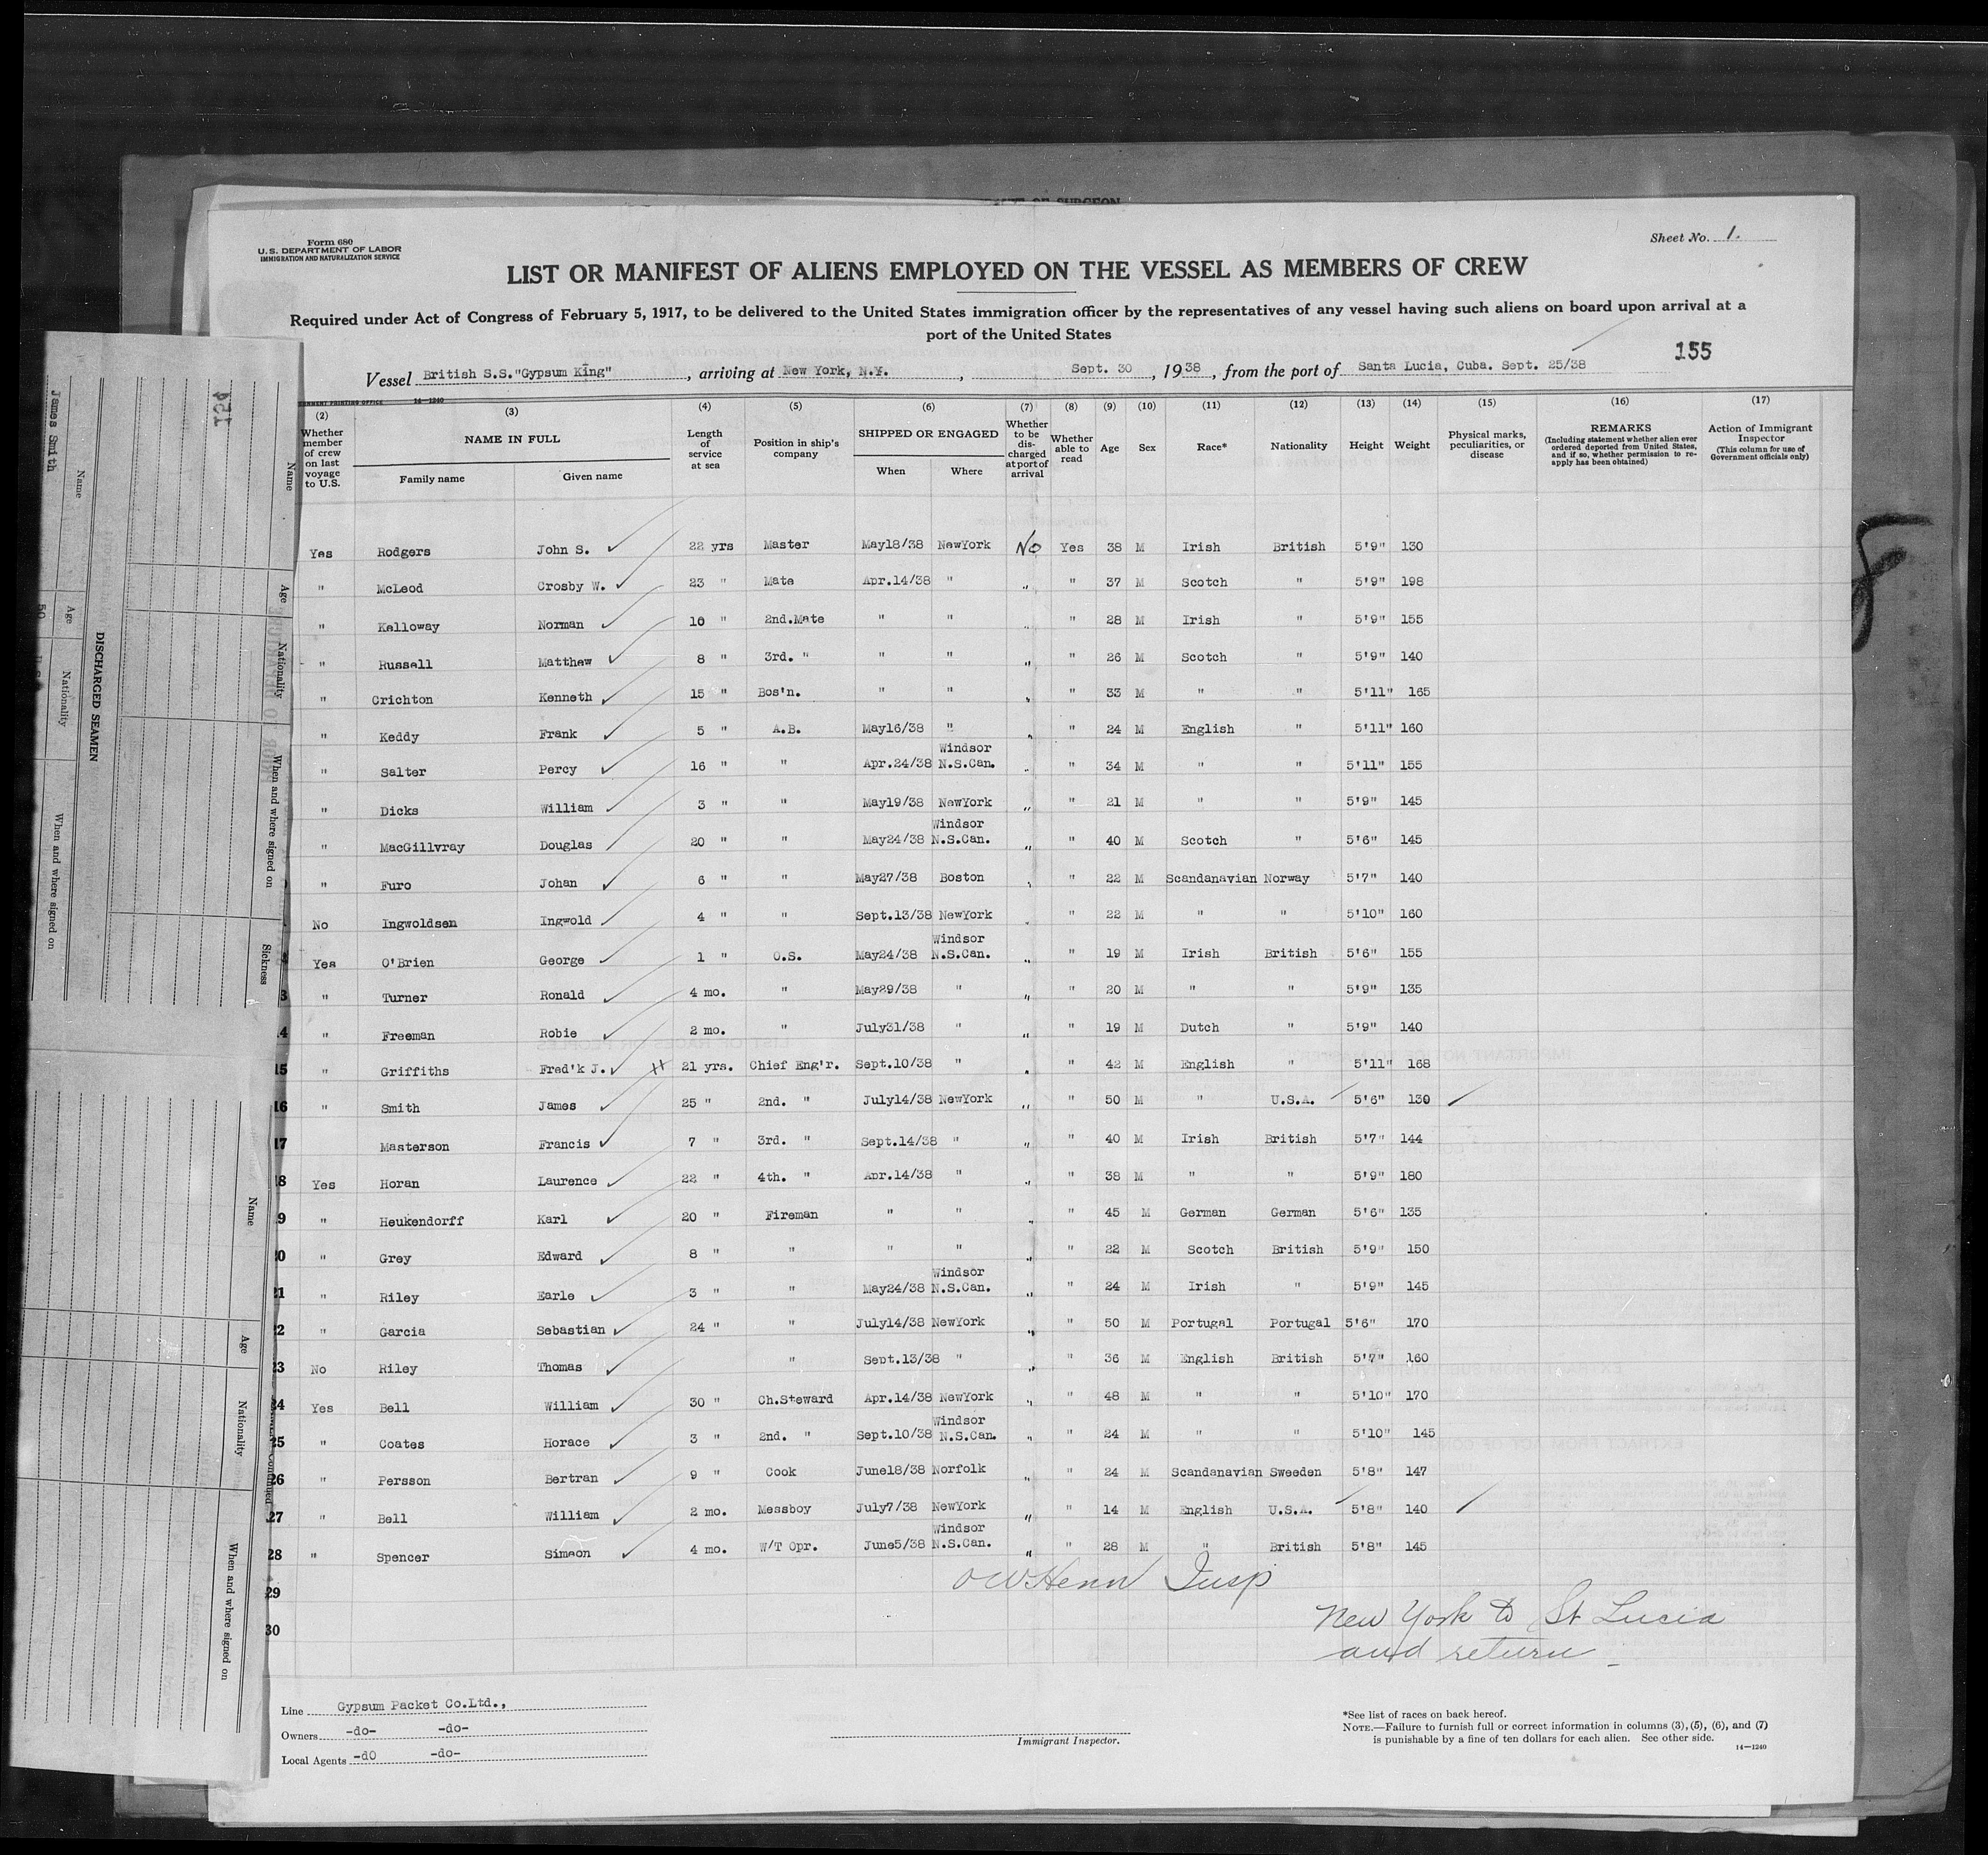 OF SURGEON
Form 680
U.S. DEPARTMENT OF LABOR
IMMIGRATION AND NATURALIZATION SERVICE
Sheet No. 1.
LIST OR MANIFEST OF ALIENS EMPLOYED ON THE VESSEL AS MEMBERS OF CREW
Required under Act of Congress of February 5, 1917, to be delivered to the United States immigration officer by the representatives of any vessel having such aliens on board upon arrival at a
port of the United States
155
Vessel British S.S."Gypsum King", arriving at New York, N.Y., Sept. 30, 1938, from the port of Santa Lucia, Cuba. Sept. 25/38
14—1240
(2) (3) (4) (5) (6) (7) (8) (9) (10) (11) (12) (13) (14) (15) (16) (17)
Whether member of crew on last voyage to U.S. NAME IN FULL Family name Given name Length of service at sea Position in ship's company SHIPPED OR ENGAGED When Where Whether to be discharged at port of arrival Whether able to read Age Sex Race* Nationality Height Weight Physical marks, peculiarities, or disease REMARKS (Including statement whether alien ever ordered deported from United States, and if so, whether permission to re-apply has been obtained) Action of Immigrant Inspector (This column for use of Government officials only)
Yes Rodgers John S. 22 yrs Master May18/38 NewYork No Yes 38 M Irish British 5'9" 130
" McLeod Crosby W. 23 " Mate Apr.14/38 " " " 37 M Scotch " 5'9" 198
" Kelloway Norman 10 " 2nd.Mate " " " " 28 M Irish " 5'9" 155
" Russell Matthew 8 " 3rd. " " " " " 26 M Scotch " 5'9" 140
" Crichton Kenneth 15 " Bos'n. " " " " 33 M " " 5'11" 165
" Keddy Frank 5 " A.B. May16/38 " " " 24 M English " 5'11" 160
" Salter Percy 16 " " Apr.24/38 Windsor N.S.Can. " " 34 M " " 5'11" 155
" Dicks William 3 " " May19/38 NewYork " " 21 M " " 5'9" 145
" MacGillvray Douglas 20 " " May24/38 Windsor N.S.Can. " " 40 M Scotch " 5'6" 145
" Furo Johan 6 " " May27/38 Boston " " 22 M Scandanavian Norway 5'7" 140
No Ingwoldsen Ingwold 4 " " Sept.13/38 NewYork " " 22 M " " 5'10" 160
Yes O'Brien George 1 " O.S. May24/38 Windsor N.S.Can. " " 19 M Irish British 5'6" 155
3 " Turner Ronald 4 mo. " May29/38 " " " 20 M " " 5'9" 135
4 " Freeman Robie 2 mo. " July31/38 " " " 19 M Dutch " 5'9" 140
15 " Griffiths Fred'k J. 21 yrs. Chief Eng'r. Sept.10/38 " " " 42 M English " 5'11" 168
16 " Smith James 25 " 2nd. " July14/38 NewYork " " 50 M " U.S.A. 5'6" 130
17 Masterson Francis 7 " 3rd. " Sept.14/38 " " " 40 M Irish British 5'7" 144
18 Yes Horan Laurence 22 " 4th. " Apr.14/38 " " " 38 M " " 5'9" 180
9 " Heukendorff Karl 20 " Fireman " " " " 45 M German German 5'6" 135
20 " Grey Edward 8 " " " " " " 22 M Scotch British 5'9" 150
21 " Riley Earle 3 " " May24/38 Windsor N.S.Can. " " 24 M Irish " 5'9" 145
22 " Garcia Sebastian 24 " " July14/38 NewYork " " 50 M Portugal Portugal 5'6" 170
23 No Riley Thomas " Sept.13/38 " " " 36 M English British 5'7" 160
24 Yes Bell William 30 " Ch.Steward Apr.14/38 NewYork " " 48 M " " 5'10" 170
25 " Coates Horace 3 " 2nd. " Sept.10/38 Windsor N.S.Can. " " 24 M " " 5'10" 145
26 " Persson Bertran 9 " Cook June18/38 Norfolk " " 24 M Scandanavian Sweeden 5'8" 147
27 " Bell William 2 mo. Messboy July7/38 NewYork " " 14 M English U.S.A. 5'8" 140
28 " Spencer Simeon 4 mo. W/T Opr. June5/38 Windsor N.S.Can. " " 28 M " British 5'8" 145
29 OWHenn Insp
30 New York to St Lucia
and return
Line Gypsum Packet Co.Ltd.,
Owners -do- -do-
Local Agents -do -do-
Immigrant Inspector.
*See list of races on back hereof.
NOTE.—Failure to furnish full or correct information in columns (3), (5), (6), and (7)
is punishable by a fine of ten dollars for each alien. See other side.
14—1240
James Smith
50
Name Age Nationality When and where signed on
DISCHARGED SEAMEN
Name Age Nationality When and where signed on Sickness
Name Age Nationality When and where signed on